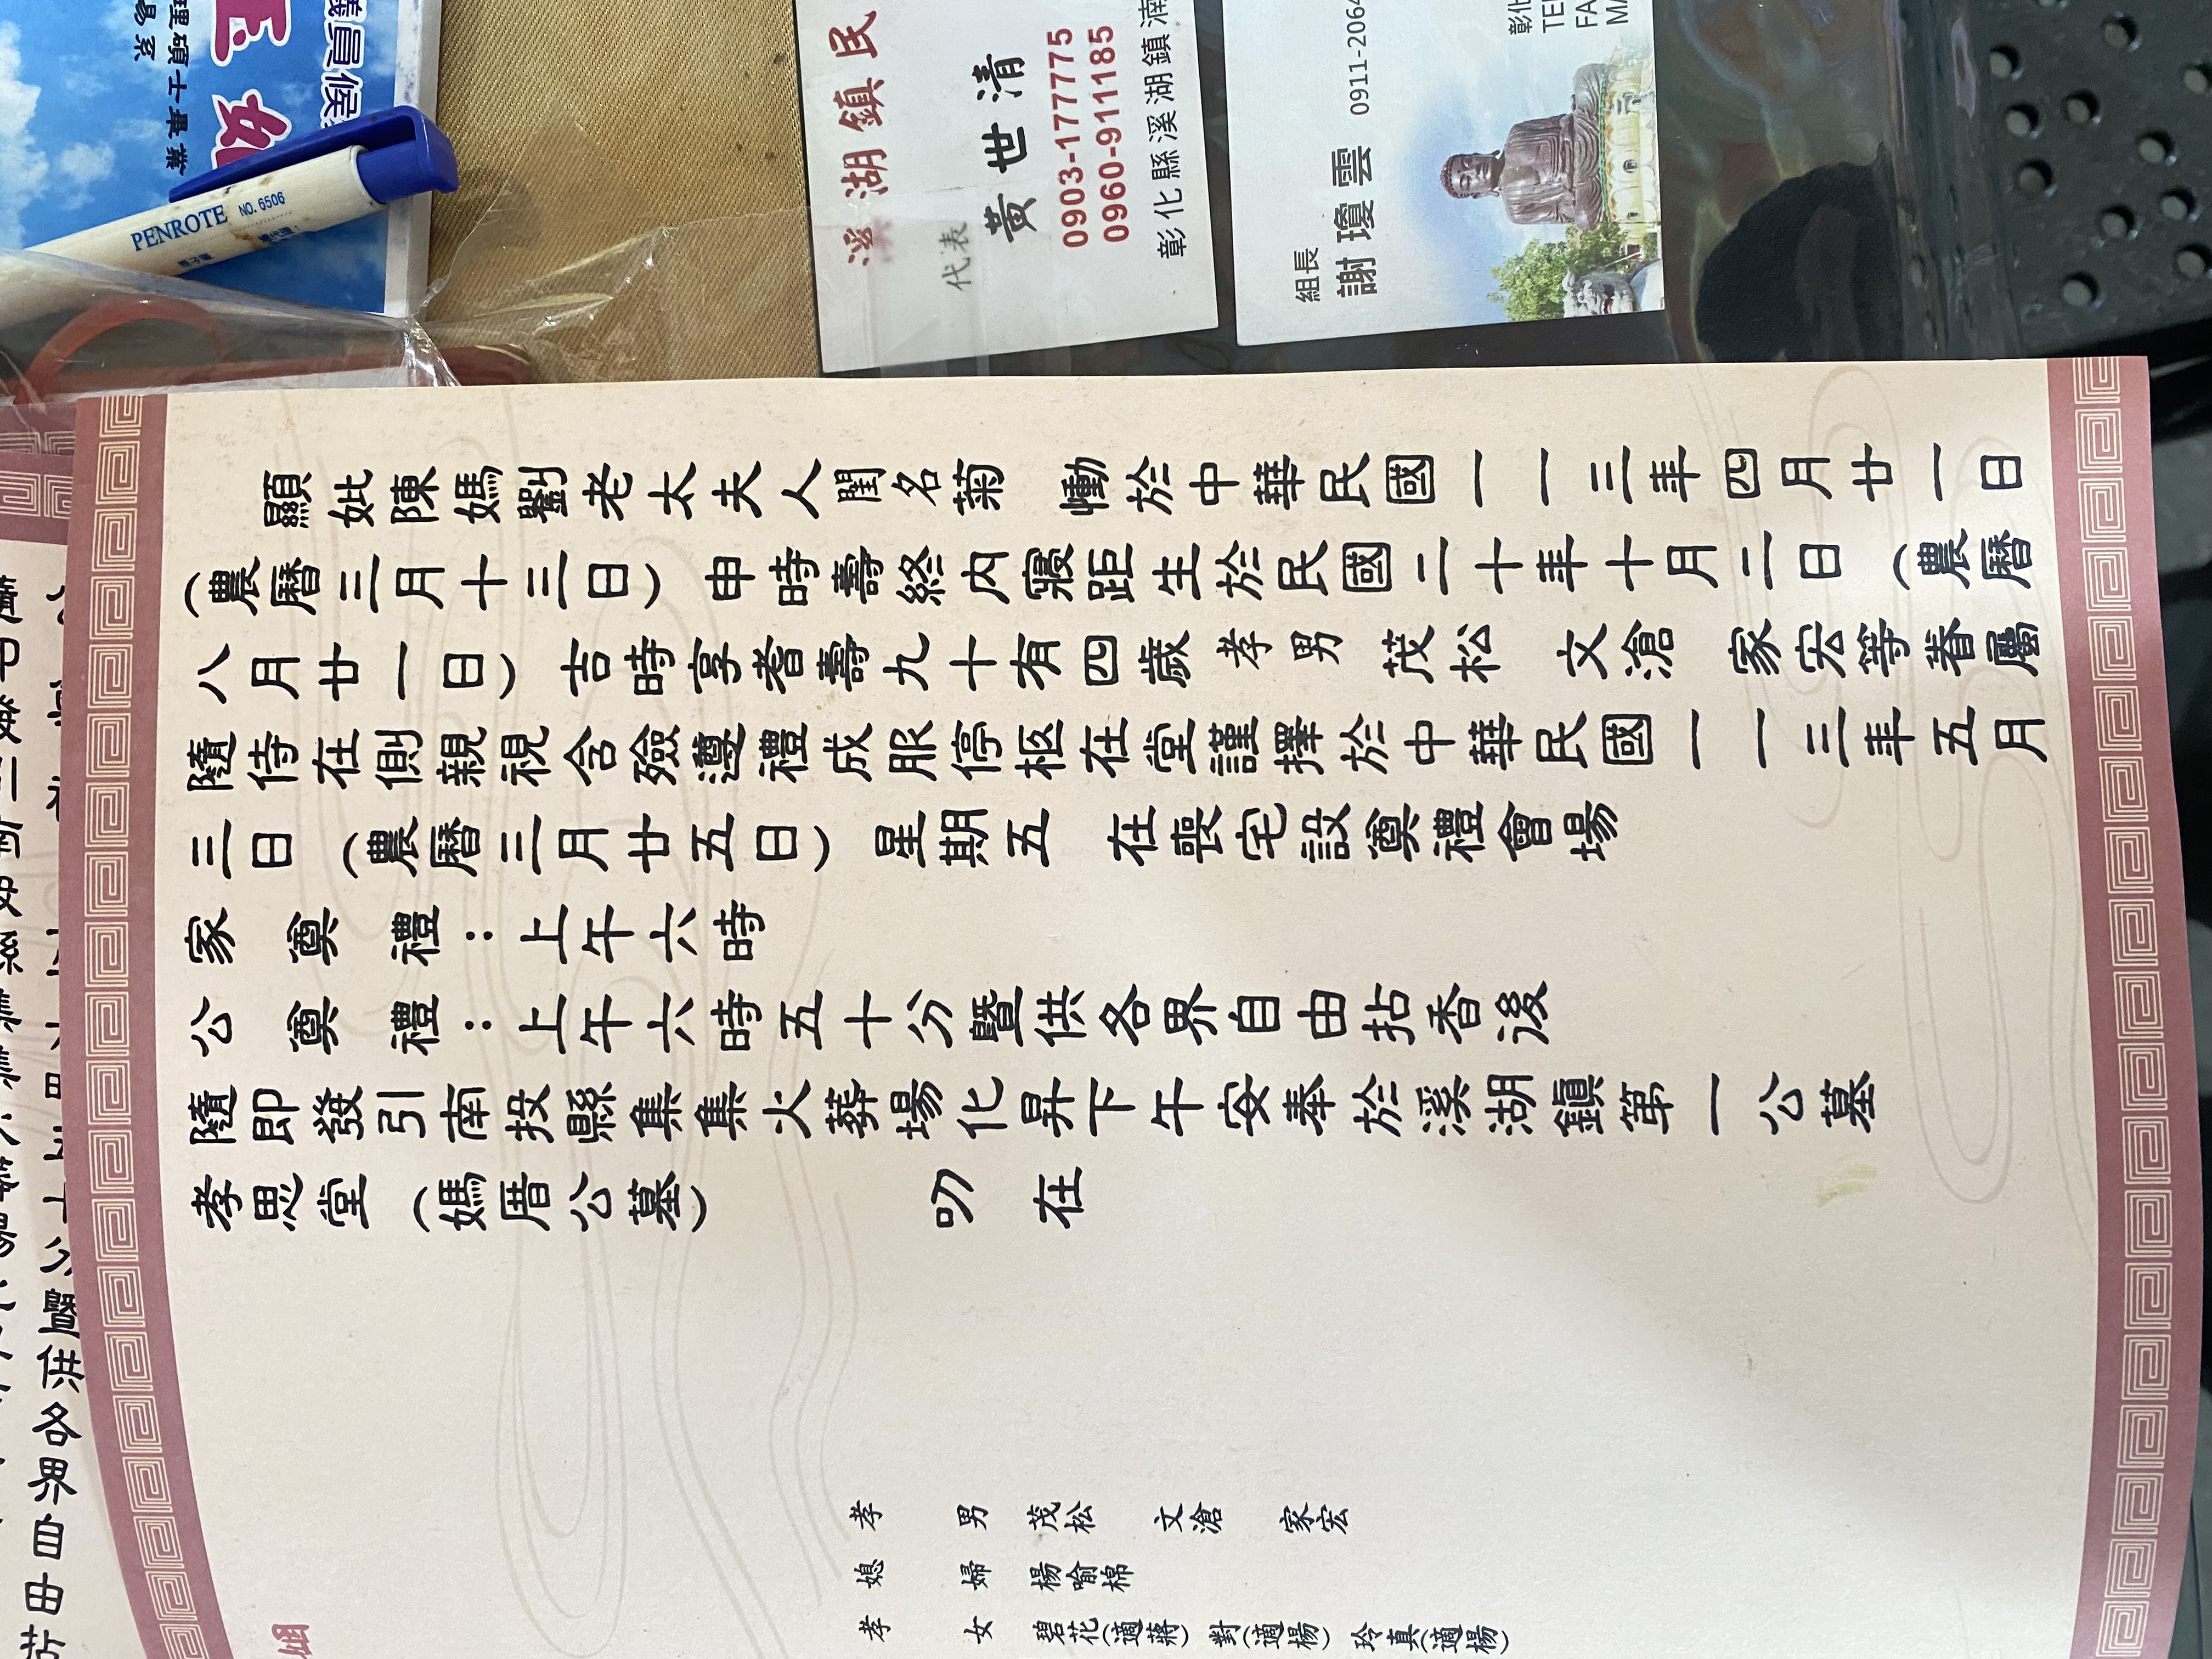 顯妣陳媽劉老太夫人閨名菊　慟於中華民國一一三年四月廿一日
（農曆三月十三日）申時壽終內寢距生於民國二十年十月二日（農曆
八月廿一日）吉時享耆壽九十有四歲孝男　茂松　文滄　家宏等眷屬
隨侍在側親視含殮遵禮成服停柩在堂謹擇於中華民國一一三年五月
三日（農曆三月廿五日）星期五　在喪宅設奠禮會場
家奠禮：上午六時
公奠禮：上午六時五十分暨供各界自由拈香後
隨即發引南投縣集集火葬場化昇下午安奉於溪湖鎮第一公墓
孝思堂（媽厝公墓）　叨在
孝男　茂松　文滄　家宏
媳婦　楊喻棉
孝女　碧花（適蔣）　對（適楊）　玲真（適楊）
溪湖鎮民
代表
黃世清
0903-177775
0960-911185
彰化縣溪湖鎮湳
組長
謝瓊雲 0911-2064
彰化
TE
FA
MA
PENROTE NO. 6506
議員候
理碩士畢業